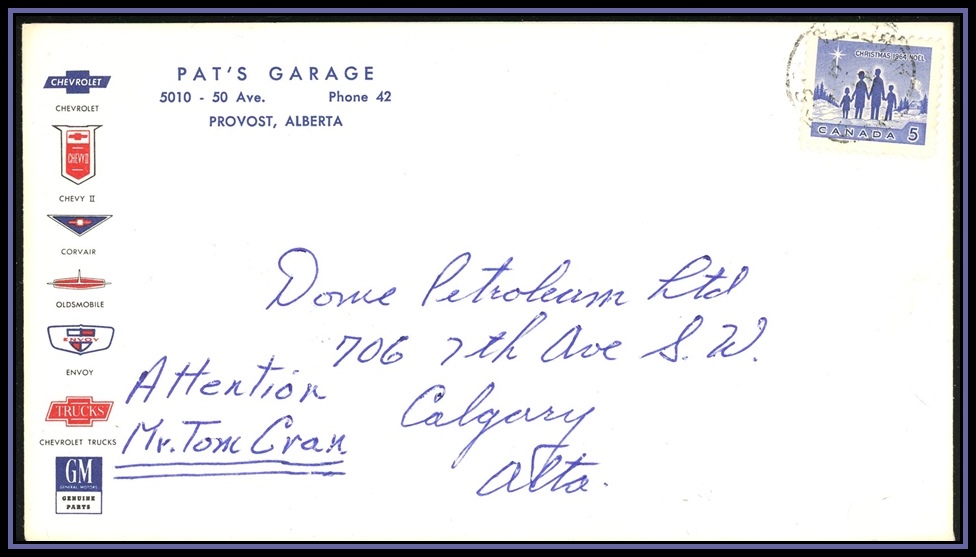 PAT'S GARAGE
5010 - 50 Ave. Phone 42
PROVOST, ALBERTA
CHRISTMAS 1964 NOËL
CANADA 5
CHEVROLET
CHEVROLET
CHEVY II
CHEVY II
CORVAIR
OLDSMOBILE
ENVOY
ENVOY
TRUCKS
CHEVROLET TRUCKS
GM
GENERAL MOTORS
GENUINE
PARTS
Dome Petroleum Ltd
706 7th Ave S.W.
Calgary
Alta.
Attention
Mr. Tom Cran